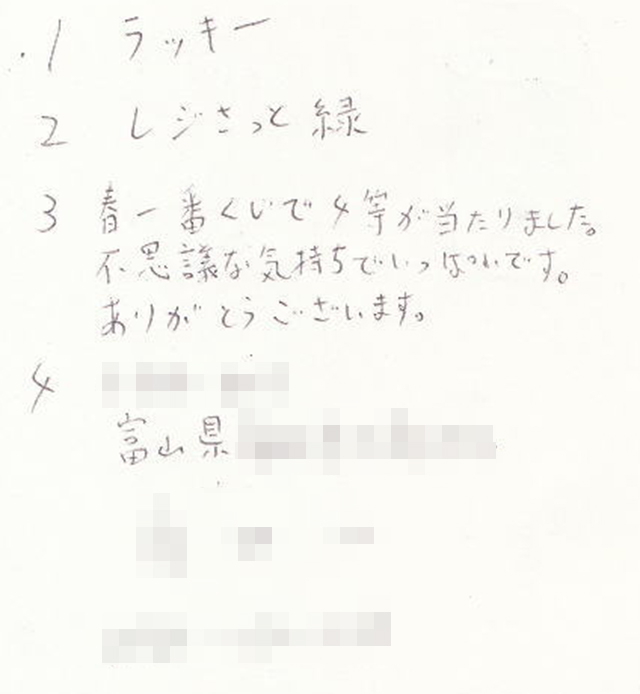 1 ラッキー
2 レジさっと緑
3 春一番くじで4等が当たりました。
不思議な気持ちでいっぱいです。
ありがとうございます。
4
富山県